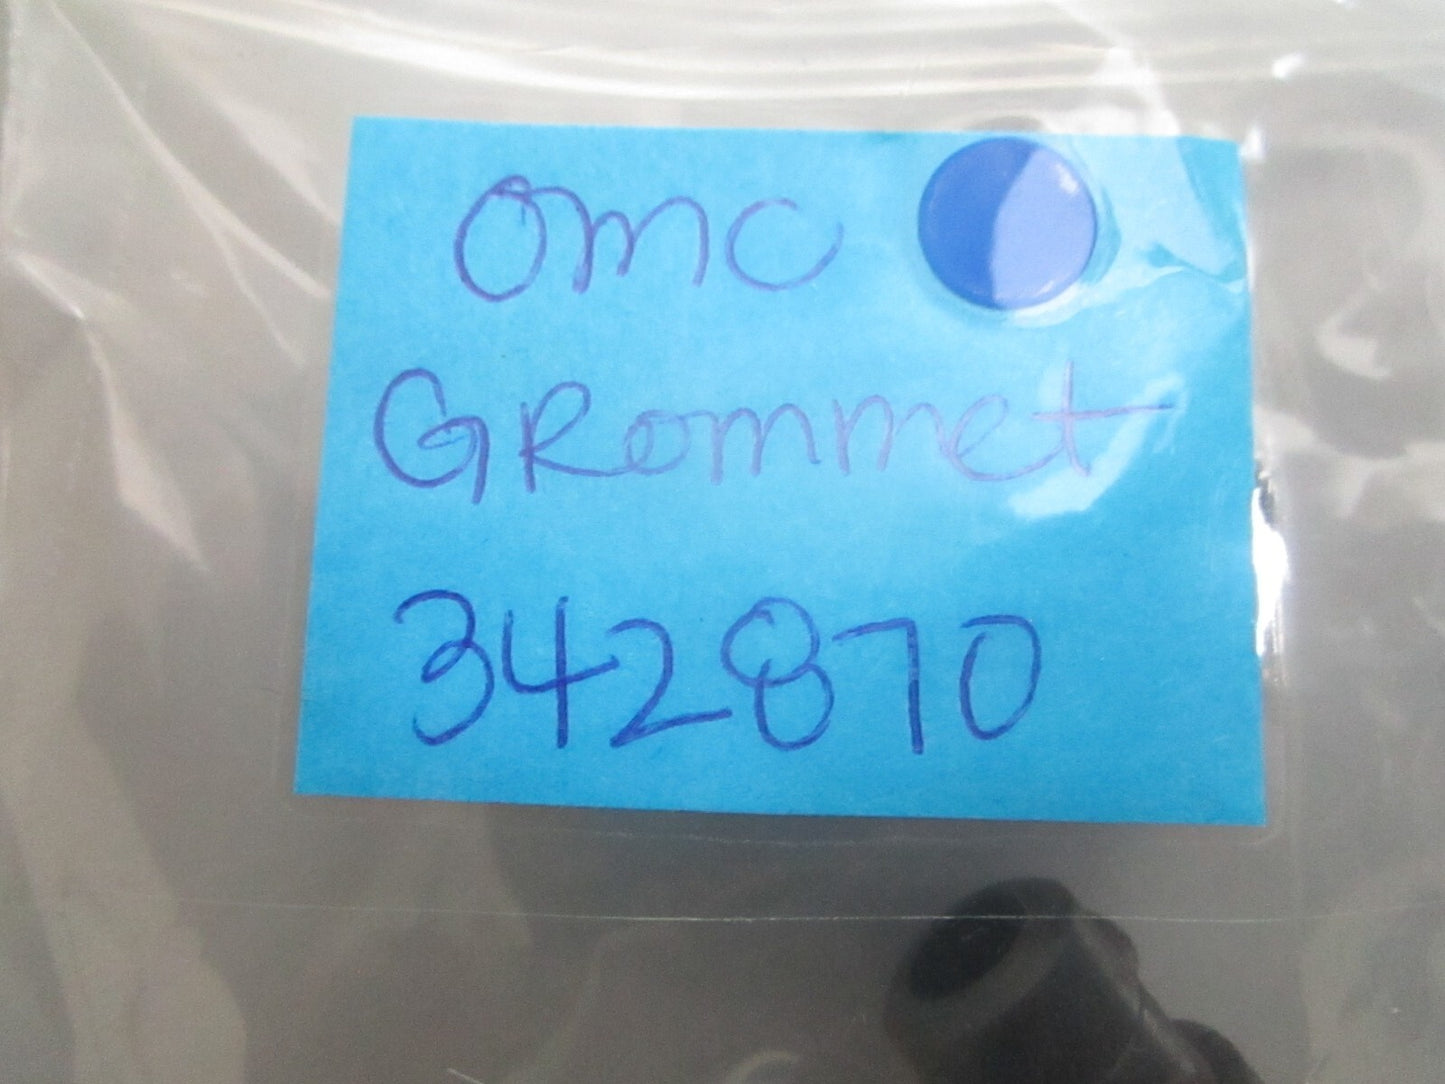 OMC
GRommet
342870